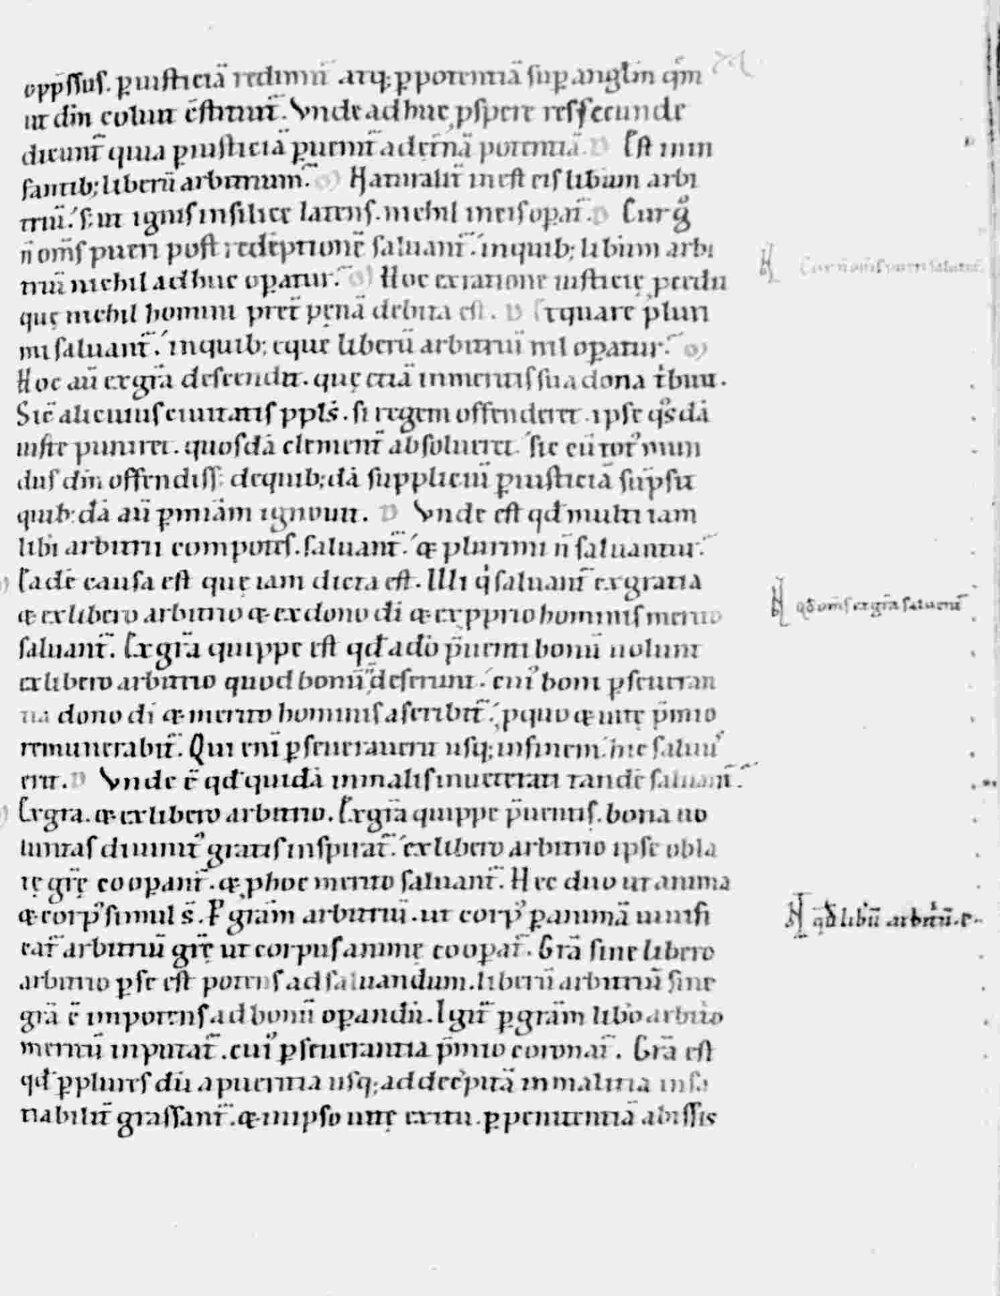 opp̄ssus. ꝑ iusticiā redimit̄ atq; ꝑ potentiā sup̄ angl̄m q̄m
ut dīn colunt c̄stituit̄. Vnde adhuc ꝓspere res secunde
dicunt̄ quia ꝑ iusticiā ꝑuenit̄ ad et̄nā potentiā. D Est infn
fantib; liberū arbitrium.̄ Naturalit̄ inest eis libum arbi
triū. s; ut ignis in silice latens. nichil in eis opat̄. D Cur g̊
n̄ om̄s pueri post redēptionē saluant̄. inquib; libium arbi
triū nichil adhuc oꝑatur.̄ Hoc ex ratione iusticię pendu
quę nichil homini pret̄ pęnā debita est. D Et quare pluri
mi saluant̄. inquib; eque liberū arbitriū nil oꝑatur.̄
Hoc aū ex gr̄a descendit. quę etiā inmeritis sua dona t͛buit.
Sic̄ alicuius ciuitatis ppl̄s. si regem offenderet. ipse q̊sdā
iuste puniret. quosdā clement̄ absolueret. sic cū tot᾿ mun
dus dīn offendiss; dequib;dā suppliciū ꝑ iusticiā sūpsit
quib;dā aū ꝑ mīam ignouit. D Vnde est qd̄ multi iam
libi arbitrii compotes. saluant̄. & plurimi n̄ saluantur.̄
Eadē causa est quę iam dicta est. Illi q̇ saluant̄ ex gratia
& ex libero arbitrio & ex dono dī & ex ꝓprio hominis merito
saluant̄. Ex gr̄a quippe est qd̄ a dō p̄uenti bonū uolunt
ex libero arbitrio quod bonū n̄ deserunt. cui᾿ boni ꝑseueran
tia dono dī & merito hominis ascribit̄. ꝓ quo & uitę p̄mio
remunerabit̄. Qui eni ꝑseuerauerit usq; infinem. hic saluus
erit. D Vnde ē qd̄ quidā inmalis inueterati tandē saluant̄.
Ex gra. & ex libero arbitrio. Ex gr̄a quippe p̄uentis. bona uo
luntas diuinit᾿ gratis inspirat̄. ex libero arbitrio ipse obla
tę gr̄ę cooꝑant̄. & ꝓ hoc merito saluant̄. Hec duo ut anima
& corp᾿ simul s̄. P gr̄am arbitriū. ut corp᾿ ꝑ animā uiuifi
cat̄ arbitriū gr̄ę ut corpus animę cooꝑat̄. Gr̄a sine libero
arbitrio ꝑ se est potens ad saluandum. liberū arbitriū sine
gr̄a ē impotens ad bonū oꝑandū. Igit̄ ꝑ gr̄am libo arbitrio
meritū inputat̄. cui᾿ ꝑseuerantia p̄mio coronat̄. Gr̄a est
qd̄ ꝑ plures dū a pueritia usq; ad decr̄pitā in malitia insa
tiabilit̄ grassant̄. & in ipso uitę exitu. ꝑ penitentiā abissis
N Cur n̄ om̄s pueri saluent̄
N qd̄ om̄s ex gr̄a saluent̄
N qd̄ libū arbitriū. ē.